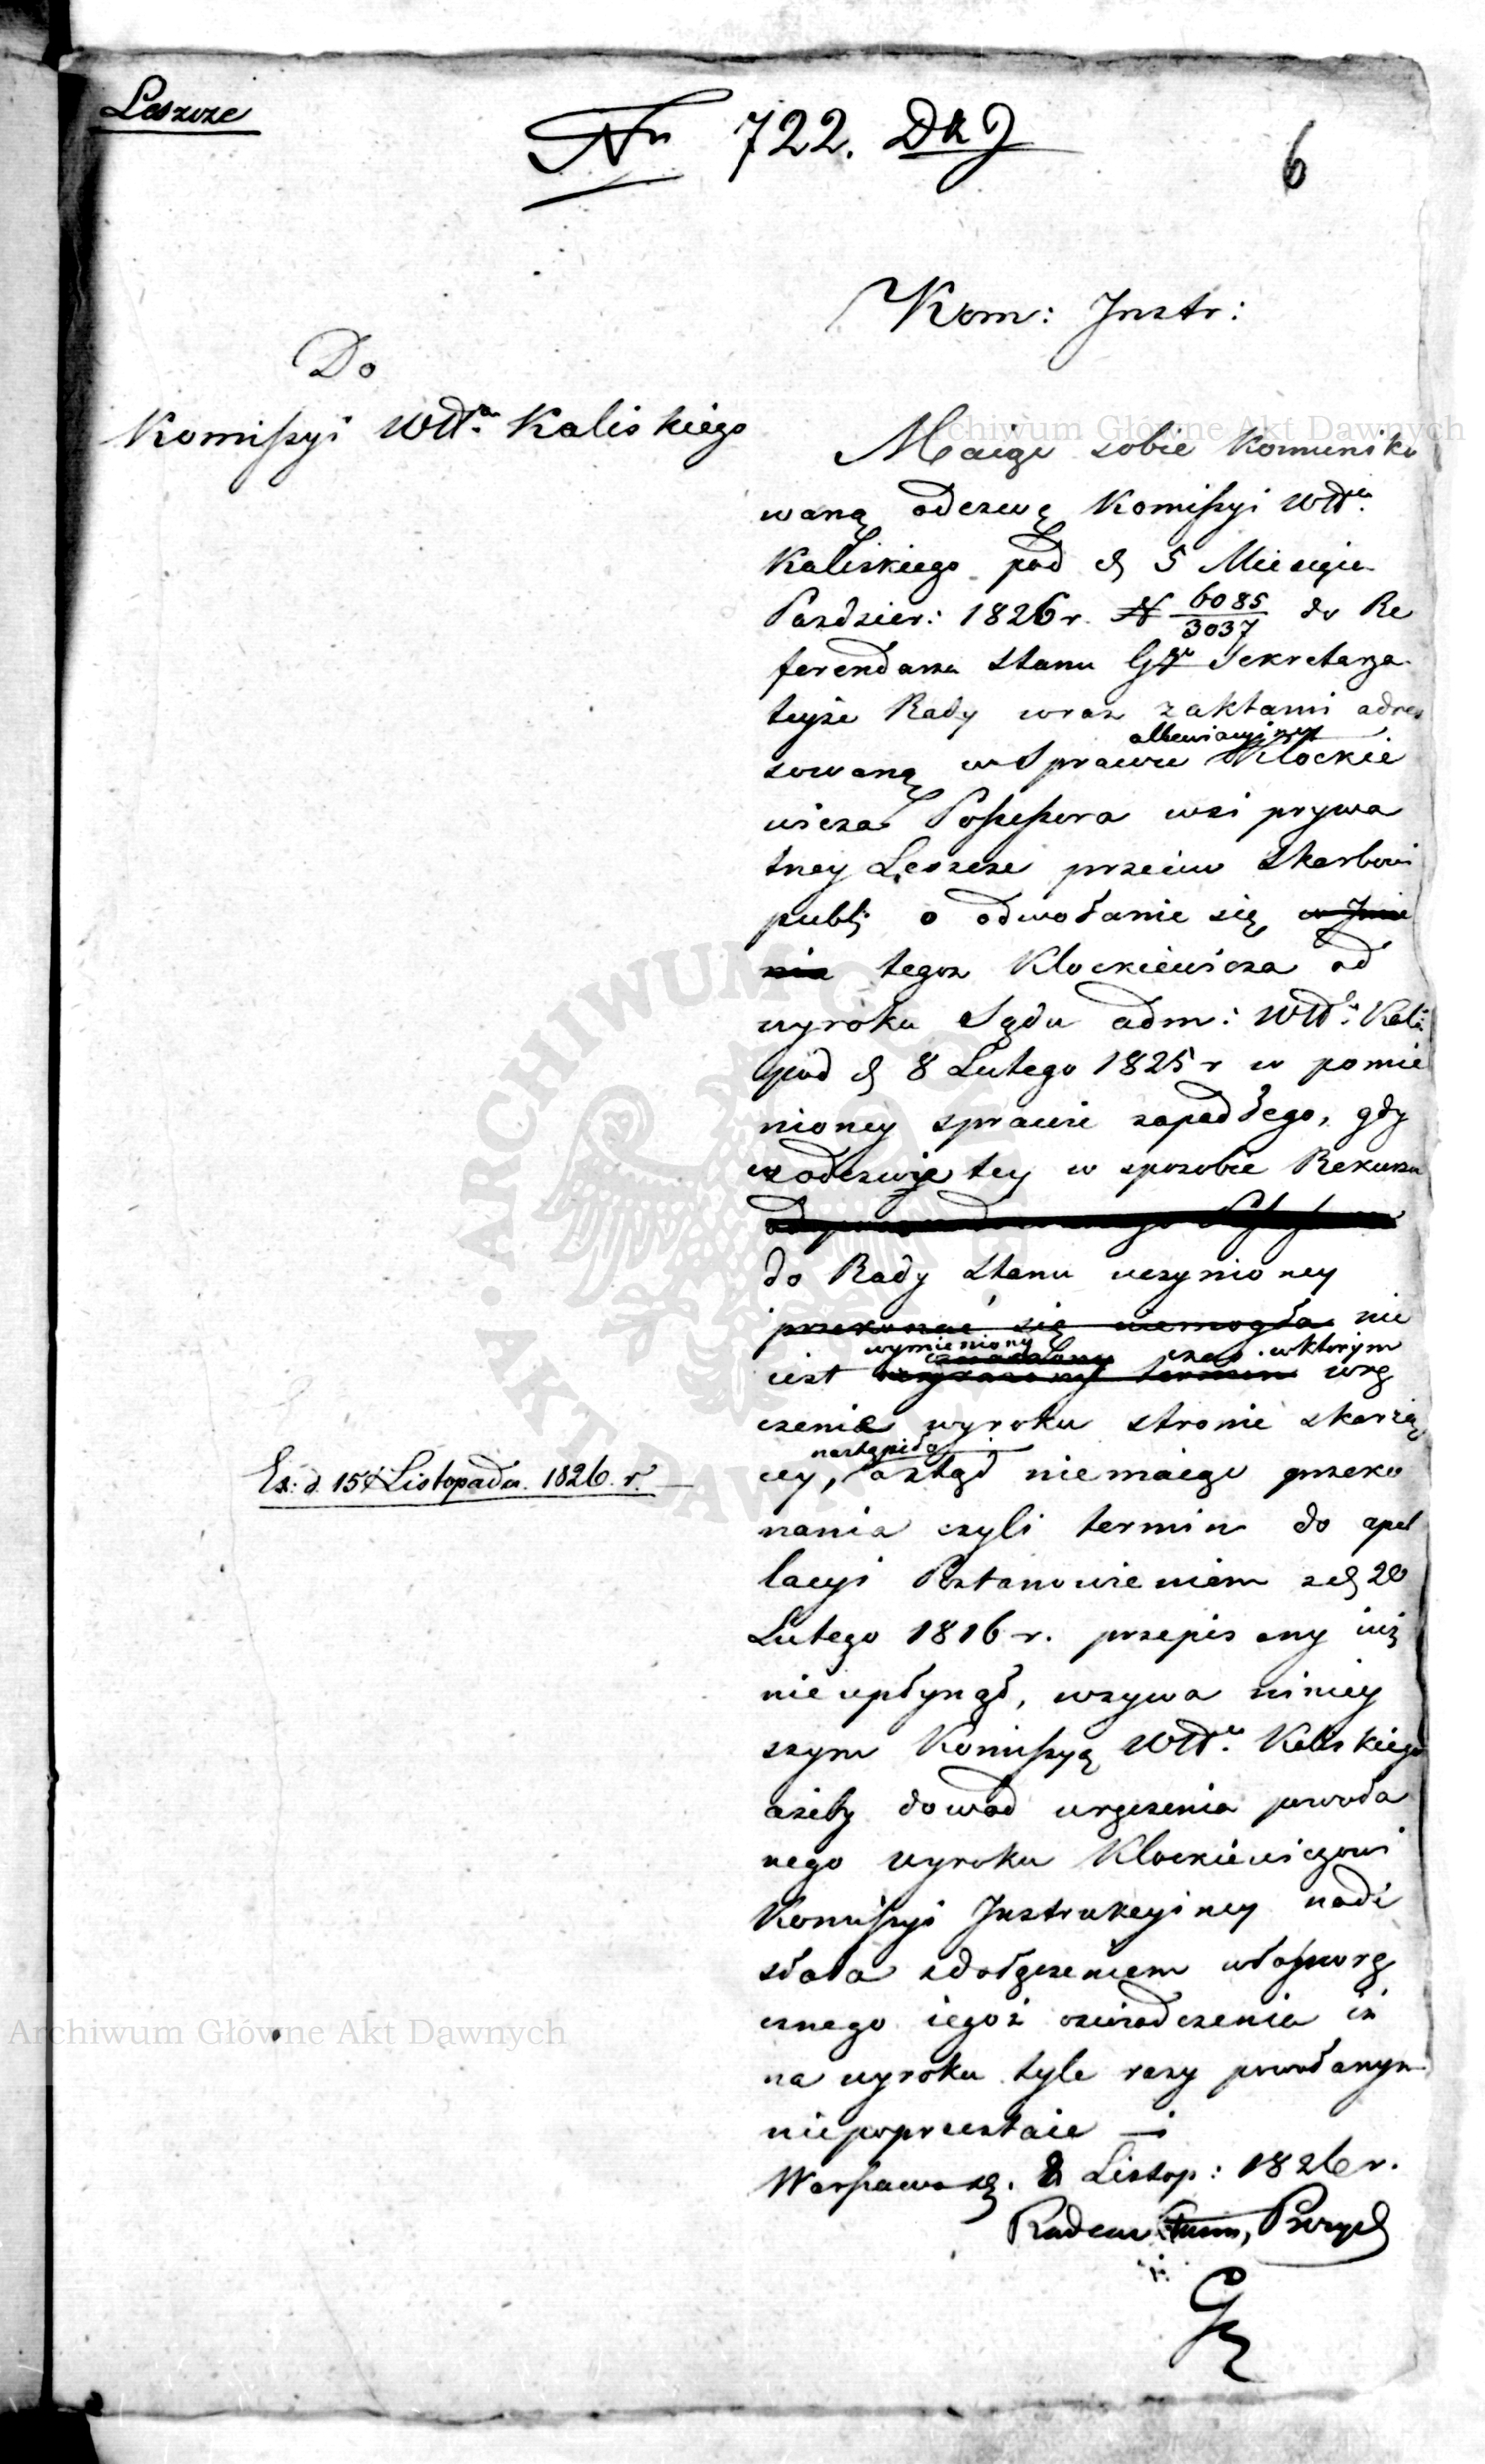 Leszcze
Nr 722. DKJ
6
Kom: Instr:
Do
Komißyi Wdt. Kaliskiego
Maiąc sobie kommuniko
waną odezwę Komißyi Wdt.
Kaliskiego pod d. 5 Miesiąca
Pazdzier: 1826 r. N 6085/3037 do Re
ferendarza Stanu Gł Sekretarza
teyże Rady wraz z aktami adres
sowaną w Sprawie allewiacyjney Klockie
wicza Poßeßora wsi prywa
tney Leszcze przeciw Skarbowi
publ: o odwołanie się w Imie
niu tegoż Klockiewicza od
wyroku Sądu adm: Wdt: Kali:
pod d. 8 Lutego 1825 r w pomie
nioney sprawie zapadłego, gdy
w odezwie tey w sposobie Rekursu
do Rady Stanu uczynioney
przekonać się niemogła nie
wymieniony czas w którym
iest wrę
czenie wyroku stronie skarżą
cey, nastąpiło a ztąd niemaiąc przeko
nania czyli termin do apel
lacyi Postanowieniem z d. 20
Lutego 1816 r. przepisany iuż
nieupłynął, wzywa niniey
szym Komißyą Wdt. Kaliskiego
ażeby dowód wręczenia powoła
nego wyroku Klockiewiczowi
Komißyi Instrukcyiney nade
słała z dołączeniem własnorę
cznego iegoż oświadczenia iż
na wyroku tyle razy powołanym
niepoprzestaie
Warßawa d. 8 Listop: 1826 r.
Radca Stanu, Prezyd
Ex: d. 15 Listopada. 1826. r.
Archiwum Główne Akt Dawnych
Archiwum Główne Akt Dawnych